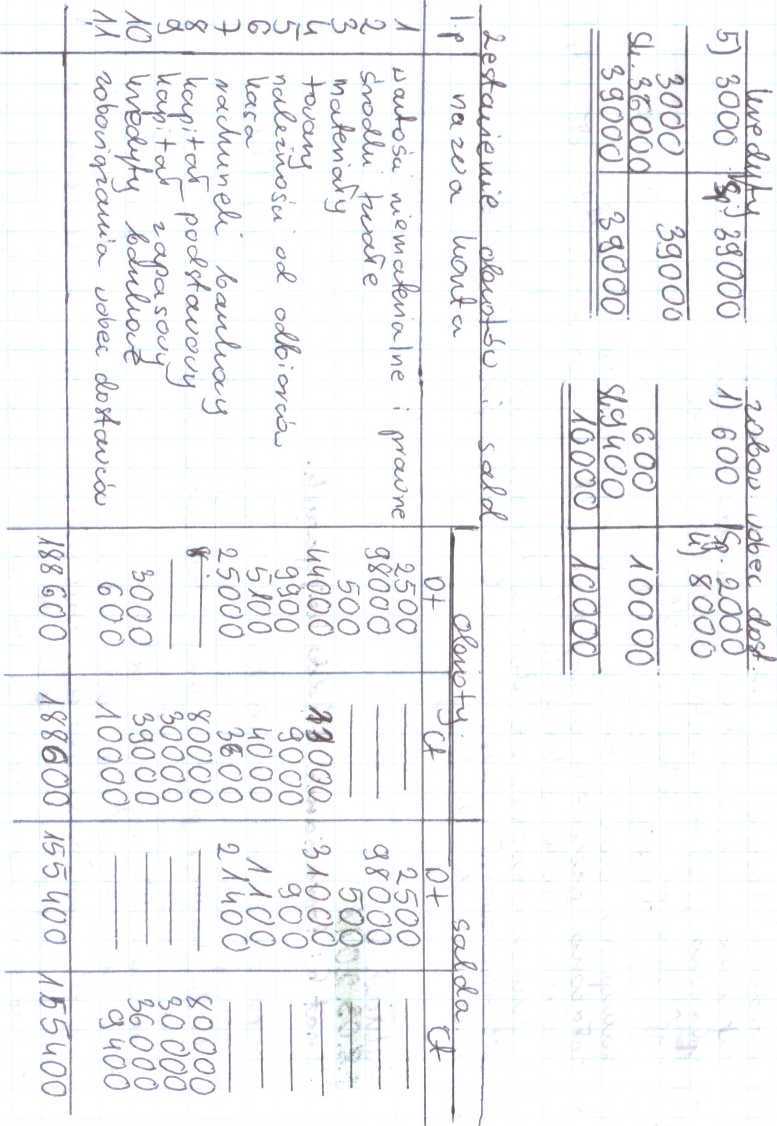 kredyty
5) 3000 Sp. 39000
3000 39000
Sk. 36000
39000 39000
zobow. wobec dost.
1) 600 Sp. 2000
4) 8000
600 10000
Sk. 9400
10000 10000
Zestawienie obrotów i sald
l.p nazwa konta obroty salda
Dt Ct Dt Ct
1 wartości niematerialne i prawne 2500 — 2500 —
2 środki trwałe 98000 — 98000 —
3 materiały 500 — 500 —
4 towary 44000 13000 31000 —
5 należności od odbiorców 9900 9000 900 —
6 kasa 5100 4000 1100 —
7 rachunek bankowy 25000 3600 21400 —
8 kapitał podstawowy — 80000 — 80000
9 kapitał zapasowy — 30000 — 30000
10 kredyty bankowe 3000 39000 — 36000
11 zobowiązania wobec dostawców 600 10000 — 9400
188600 188600 155400 155400